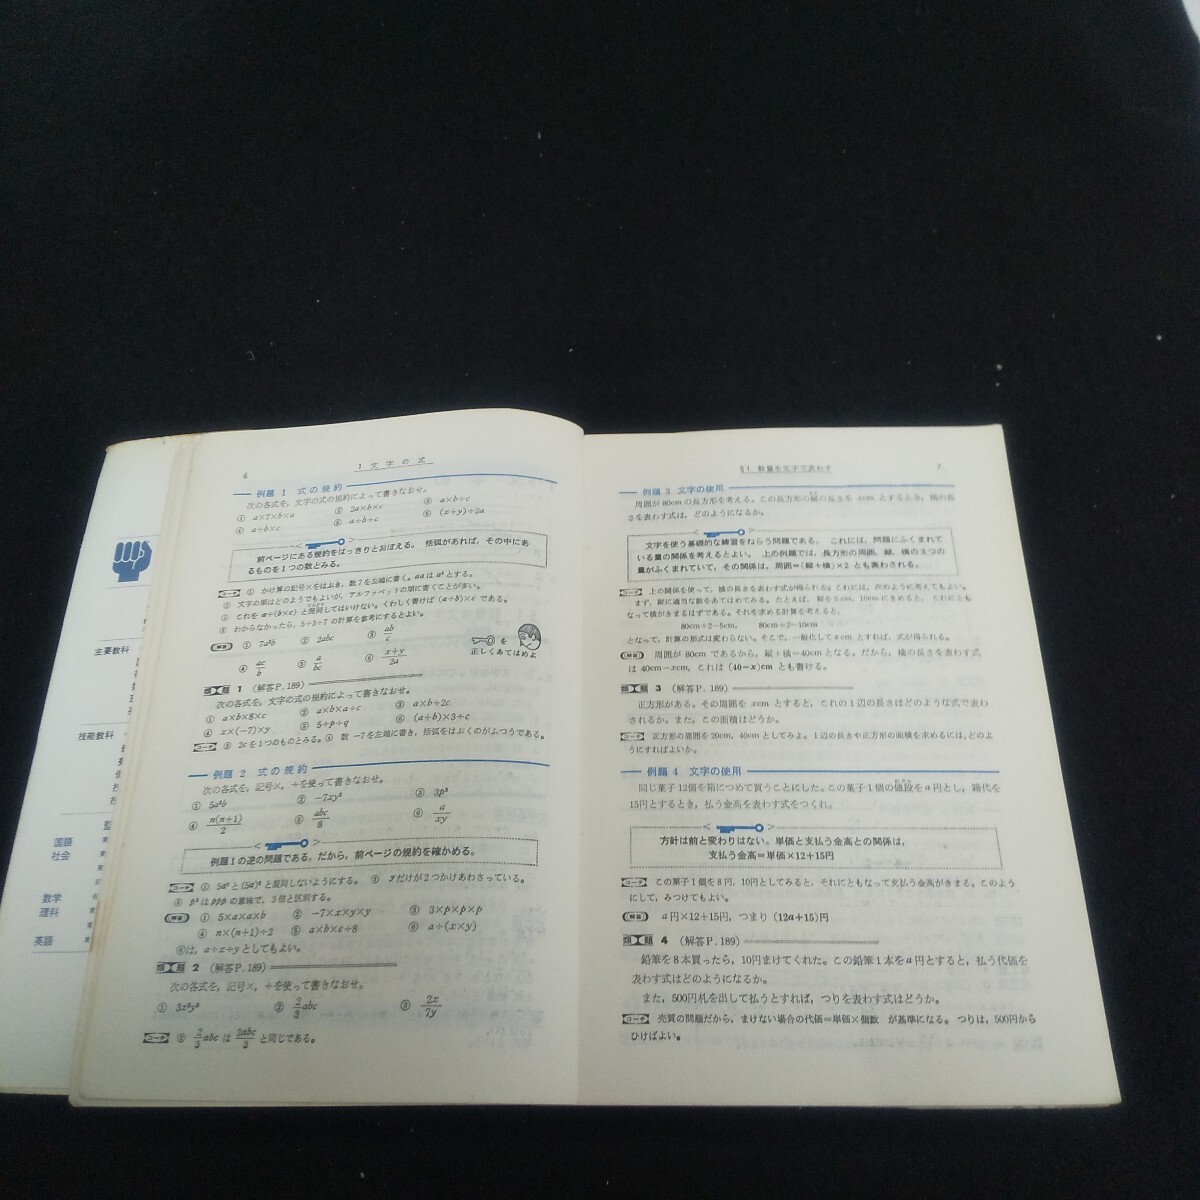 主要教科
技能教科
監
国語
社会
数学
理科
英語
6
1 文字の式
例題 1 式の規約
次の各式を，文字の式の規約によって書きなおせ。
① a×7×b×a ② 2a×b×c ③ a×b÷c
④ a÷b×c ⑤ a÷b÷c ⑥ (x+y)÷2a
前ページにある規約をはっきりとおぼえる。 括弧があれば，その中にあ
るものを1つの数とみる。
コーチ ① かけ算の記号×をはぶき，数7を左端に書く。aaはa²とする。
② 文字の順はどのようでもよいが，アルファベットの順に書くことが多い。
④ これをa÷(b×c)と混同してはいけない。くわしく書けば(a÷b)×cである。
⑤ わからなかったら，5÷3÷7の計算を参考にするとよい。
解答 ① 7a²b ② 2abc ③ ab/c
④ ac/b ⑤ a/bc ⑥ x+y/2a
を
正しくあてはめよ
類題 1 (解答P.189)
次の各式を，文字の式の規約によって書きなおせ。
① a×b×8×c ② a×b×a÷c ③ a×b÷2c
④ x×(-7)×y ⑤ 5÷p÷q ⑥ (a+b)×3÷c
コーチ ③ 2cを1つのものとみる。④ 数-7を左端に書き，括弧をはぶくのがふつうである。
例題 2 式の規約
次の各式を，記号×，÷を使って書きなおせ。
① 5a²b ② -7xy² ③ 3p³
④ n(n+1)/2 ⑤ abc/8 ⑥ a/xy
例題1の逆の問題である。だから，前ページの規約を確かめる。
コーチ ① 5a²と(5a)²と混同しないようにする。 ② yだけが2つかけあわさっている。
③ p³はpppの意味で，3倍と区別する。
解答 ① 5×a×a×b ② -7×x×y×y ③ 3×p×p×p
④ n×(n+1)÷2 ⑤ a×b×c÷8 ⑥ a÷(x×y)
⑥は，a÷x÷yとしてもよい。
類題 2 (解答P.189)
次の各式を，記号×，÷を使って書きなおせ。
① 3x²y² ② 2/3abc ③ 2x/7y
コーチ ② 2/3abcは2abc/3と同じである。
§1 数量を文字で表わす 7
例題 3 文字の使用
周囲が80cmの長方形を考える。この長方形の縦の長さをxcmとするとき，横の長
さを表わす式は，どのようになるか。
文字を使う基礎的な練習をねらう問題である。 これには，問題にふくまれて
いる量の関係を考えるとよい。 上の例題では，長方形の周囲，縦，横の3つの
量がふくまれていて，その関係は，周囲=(縦+横)×2 とも表わされる。
コーチ 上の関係を使って，横の長さを表わす式が得られる。これには，次のように考えてもよい。
まず，縦に適当な数をあてはめてみる。たとえば，縦を5cm，10cmにきめると，これにとも
なって横がきまるはずである。それを求める計算を考えると，
80cm÷2-5cm， 80cm÷2-10cm
となって，計算の形式は変わらない。そこで，一般化してxcmとすれば，式が得られる。
解答 周囲が80cmであるから，縦+横=40cmとなる。だから，横の長さを表わす式
は 40cm-xcm，これは (40-x)cm とも書ける。
類題 3 (解答P.189)
正方形がある。その周囲を xcm とすると，これの1辺の長さはどのような式で表わ
されるか。また，この面積はどうか。
コーチ 正方形の周囲を20cm，40cmとしてみよ。1辺の長さや正方形の面積を求めるには，どのよ
うにすればよいか。
例題 4 文字の使用
同じ菓子12個を箱につめて買うことにした。この菓子1個の値段をa円とし，箱代を
15円とするとき，払う金高を表わす式をつくれ。
方針は前と変わりはない。単価と支払う金高との関係は，
支払う金高=単価×12+15円
コーチ この菓子1個を8円，10円としてみると，それにともなって支払う金高がきまる。このよう
にして，みつけてもよい。
解答 a円×12+15円，つまり (12a+15)円
類題 4 (解答P.189)
鉛筆を8本買ったら，10円まけてくれた。この鉛筆1本をa円とすると，払う代価を
表わす式はどのようになるか。
また，500円札を出して払うとすれば，つりを表わす式はどうか。
コーチ 売買の問題だから，まけない場合の代価=単価×個数 が基準になる。つりは，500円から
ひけばよい。